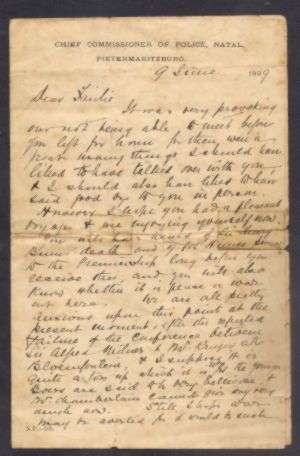 CHIEF COMMISSIONER OF POLICE, NATAL,
PIETERMARITZBURG.
9 June 1899
Dear
It was very provoking
our not being able to meet before
you left for home for there were a
great many things I should have
liked to have talked over with you,
& I should also have liked to have
said good bye to you in person.
However I hope you had a pleasant
voyage & are enjoying yourself now.
You will
death and of
to the Premiership long before you
receive this and you will also
know whether it is peace or war
out here. We are all pretty
anxious upon this point at the
present moment, after the
failure of the Conference between
Sir Alfred Milner & Mr Kruger at
Bloemfontein, & I suppose it is
quite on which it is. The young
Boers are said to be very bellicose &
Mr Chamberlain cannot give way very
much now. Still I hope war
may be averted for it would be such